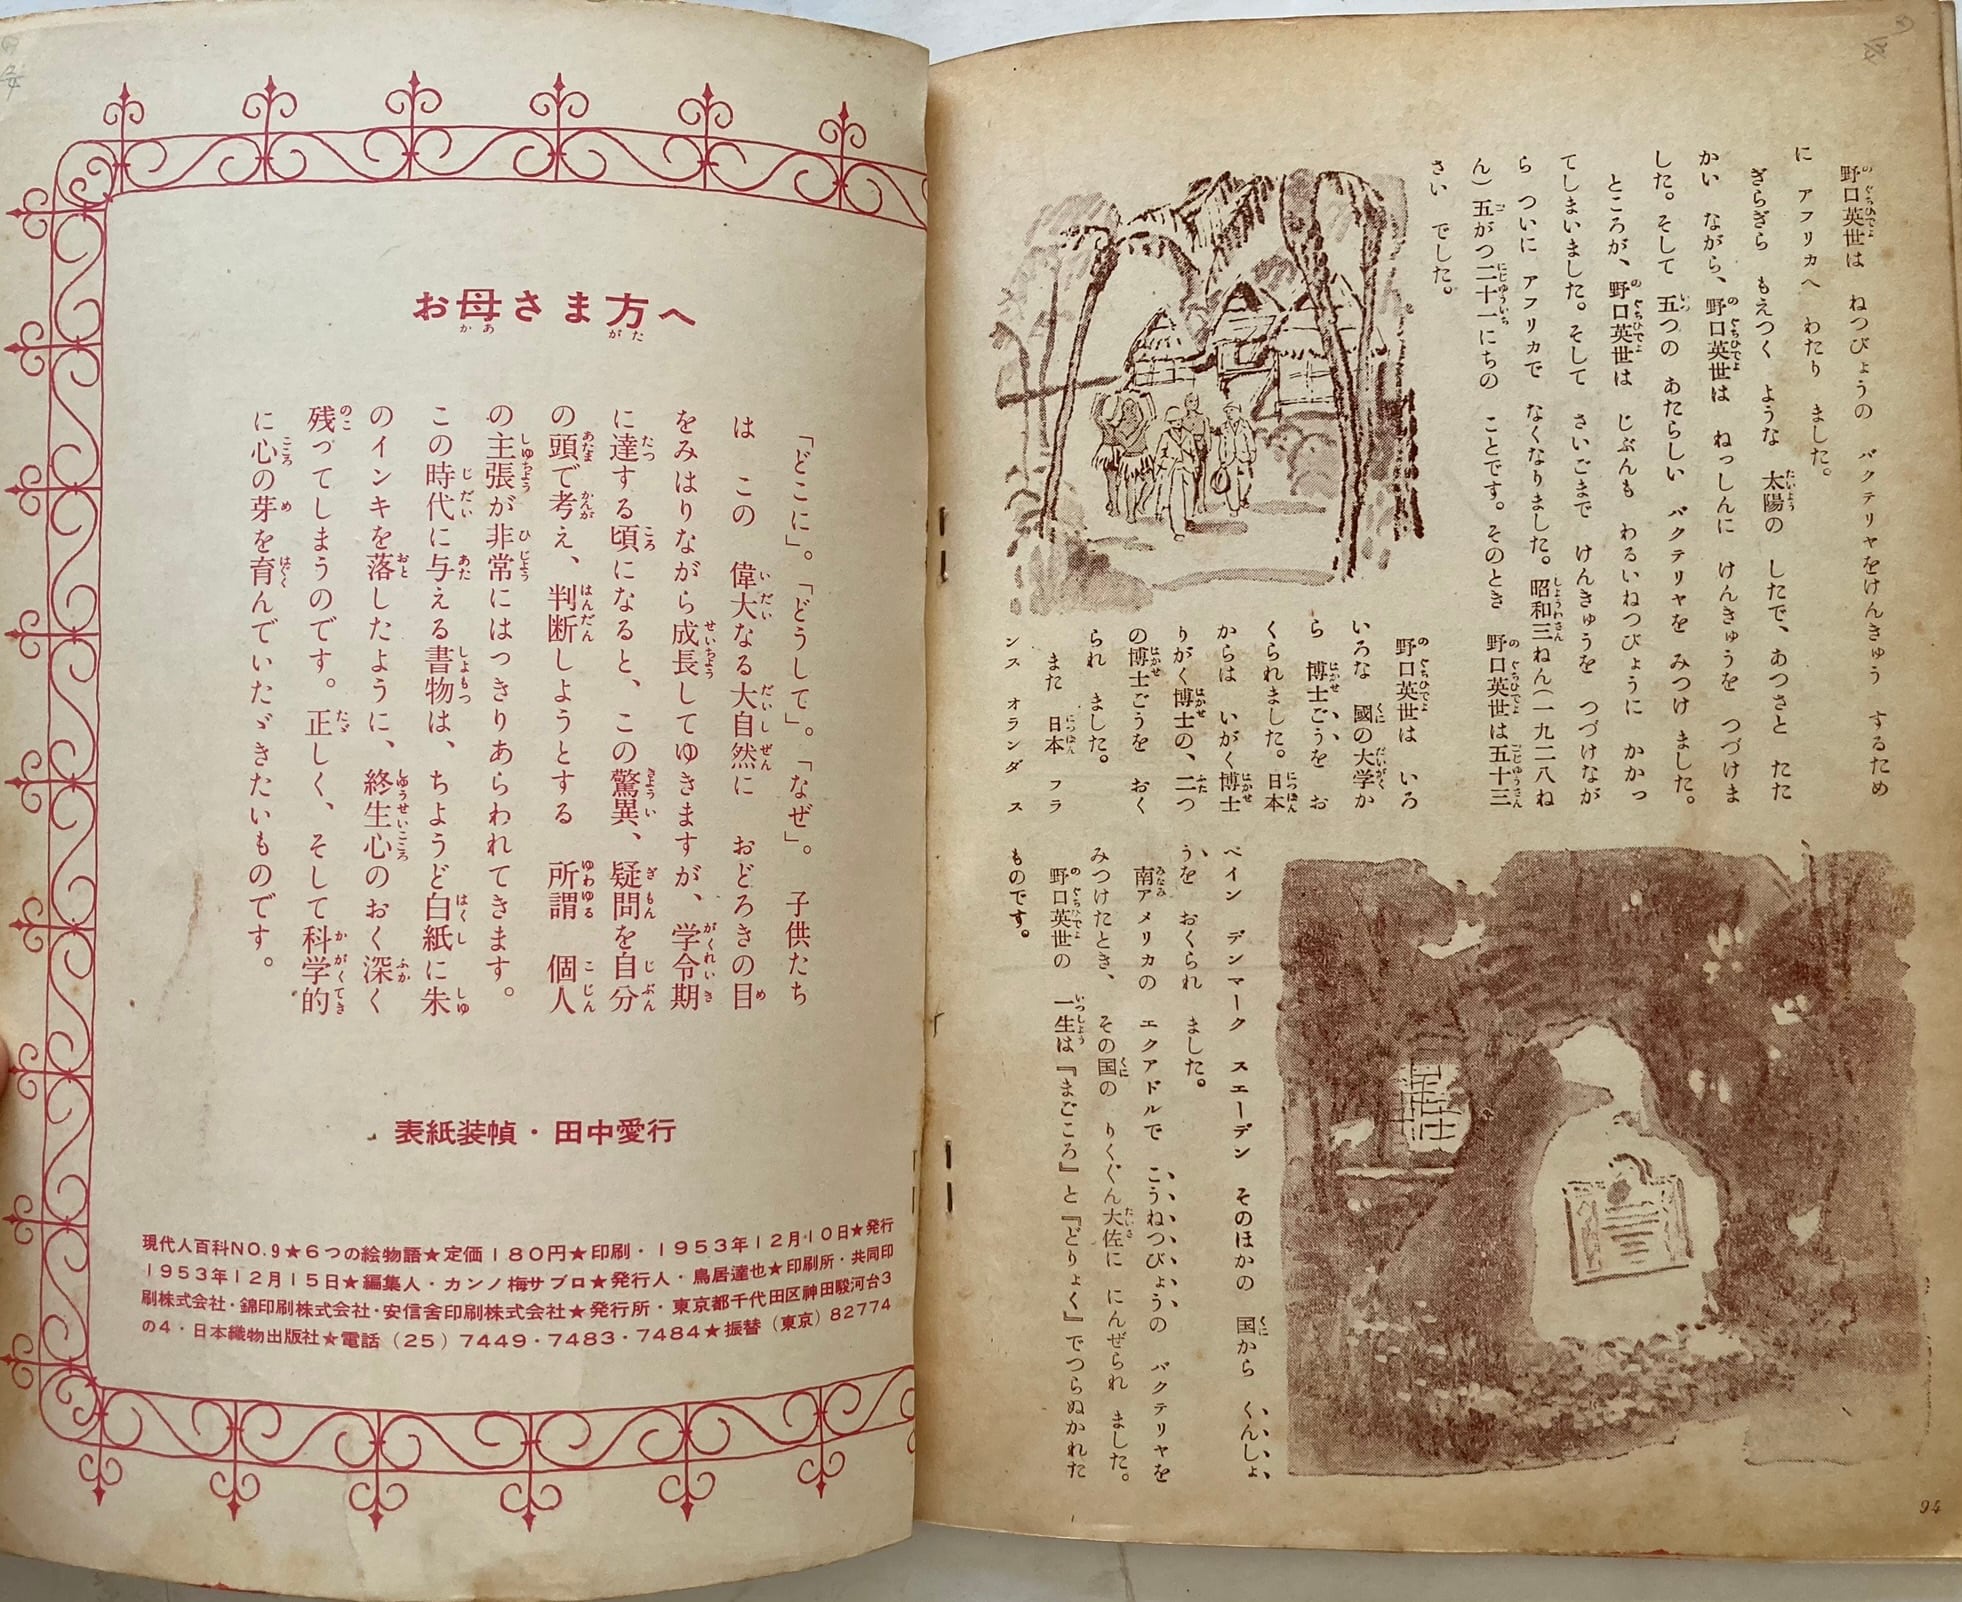 野口英世は ねつびょうの バクテリヤをけんきゅう するため
に アフリカへ わたり ました。
ぎらぎら もえつく ような 太陽の したで、あつさと たた
かい ながら、野口英世は ねっしんに けんきゅうを つづけま
した。そして 五つの あたらしい バクテリヤを みつけ ました。
ところが、野口英世は じぶんも わるいねつびょうに かかっ
てしまいました。そして さいごまで けんきゅうを つづけなが
ら ついに アフリカで なくなりました。昭和三ねん(一九二八ね
ん)五がつ二十一にちの ことです。そのとき 野口英世は五十三
さい でした。
野口英世は いろ
いろな 國の大学か
ら 博士ごうを お
くられました。日本
からは いがく博士
りがく博士の、二つ
の博士ごうを おく
られ ました。
また 日本 フラ
ンス オランダ ス
ペイン デンマーク スエーデン そのほかの 国から くんしょ
うを おくられ ました。
南アメリカの エクアドルで こうねつびょうの バクテリヤを
みつけたとき、その国の りくぐん大佐に にんぜられ ました。
野口英世の 一生は『まごころ』と『どりょく』でつらぬかれた
ものです。
94
お母さま方へ
「どこに」。「どうして」。「なぜ」。 子供たち
は この 偉大なる大自然に おどろきの目
をみはりながら成長してゆきますが、学令期
に達する頃になると、この驚異、疑問を自分
の頭で考え、判断しようとする 所謂 個人
の主張が非常にはっきりあらわれてきます。
この時代に与える書物は、ちようど白紙に朱
のインキを落したように、終生心のおく深く
残ってしまうのです。正しく、そして科学的
に心の芽を育んでいたゞきたいものです。
表紙装幀・田中愛行
現代人百科NO.9★6つの絵物語★定価180円★印刷・1953年12月10日★発行
1953年12月15日★編集人・カンノ梅サブロ★発行人・鳥居達也★印刷所・共同印
刷株式会社・錦印刷株式会社・安信舎印刷株式会社★発行所・東京都千代田区神田駿河台3
の4・日本織物出版社★電話(25)7449・7483・7484★振替(東京)82774